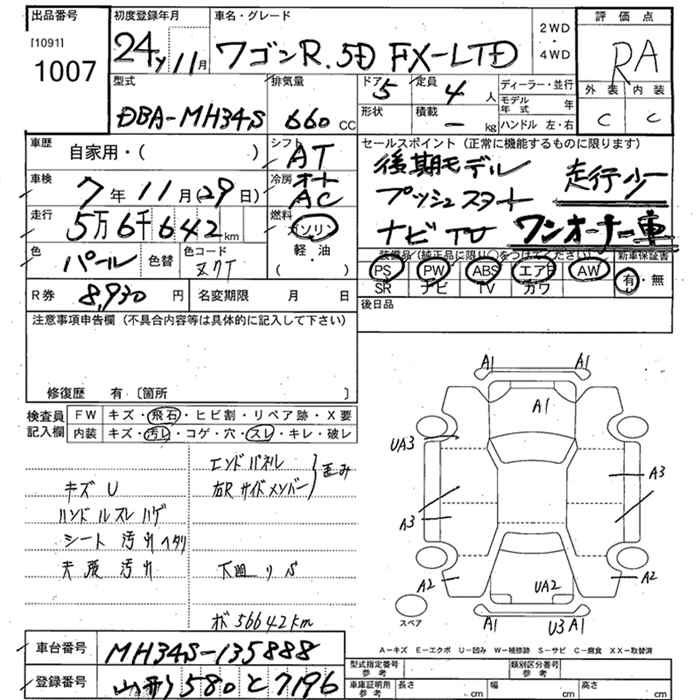 出品番号 初度登録年月 車名・グレード 2WD 評価点
[1091] 1007 24y 11月 ワゴンR.5D FX-LTD ・4WD RA
型式 排気量 ドア 5 定員 4人 ディーラー・並行 外装 内装
DBA-MH34S 660cc 形状 積載 -kg モデル年式 年 C C
ハンドル 左・右
車歴 自家用・( ) シフト AT セールスポイント(正常に機能するものに限ります)
車検 7年11月(29日) 冷房 オート AC 後期モデル 走行少
プッシュスタート
走行 5万6千642km 燃料 ガソリン ナビTV ワンオーナー車
色 パール 色替 色コード ZQT 軽・油 ( ) 装備品(純正品に限り○をつけてください) 新車保証書
PS PW ABS エアB AW 有・無
R券 8,930円 名変期限 月 日 SR ナビ TV カワ
注意事項申告欄(不具合内容等は具体的に記入して下さい) 後日品
修復歴 有〔箇所 〕
検査員記入欄 FW キズ・飛石・ヒビ割・リペア跡・X要
内装 キズ・汚レ・コゲ・穴・スレ・キレ・破レ
エンドパネル
キズU 右Rサイドメンバー 歪み
ハンドルスレハゲ
シート汚れヘタリ
天張汚れ 下廻りサビ
メーター 56642km
A1 A1
A1
UA3
A3
A3
A2 A2
UA2
スペア A1 U3 A1
A-キズ E-エクボ U-凹み W-補修跡 S-サビ C-腐食 XX-取替済
車台番号 MH34S-135888
型式指定番号 参考 類別区分番号 参考
登録番号 山形 580 と 7196
車庫証明用 参考 長さ cm 幅 cm 高さ cm